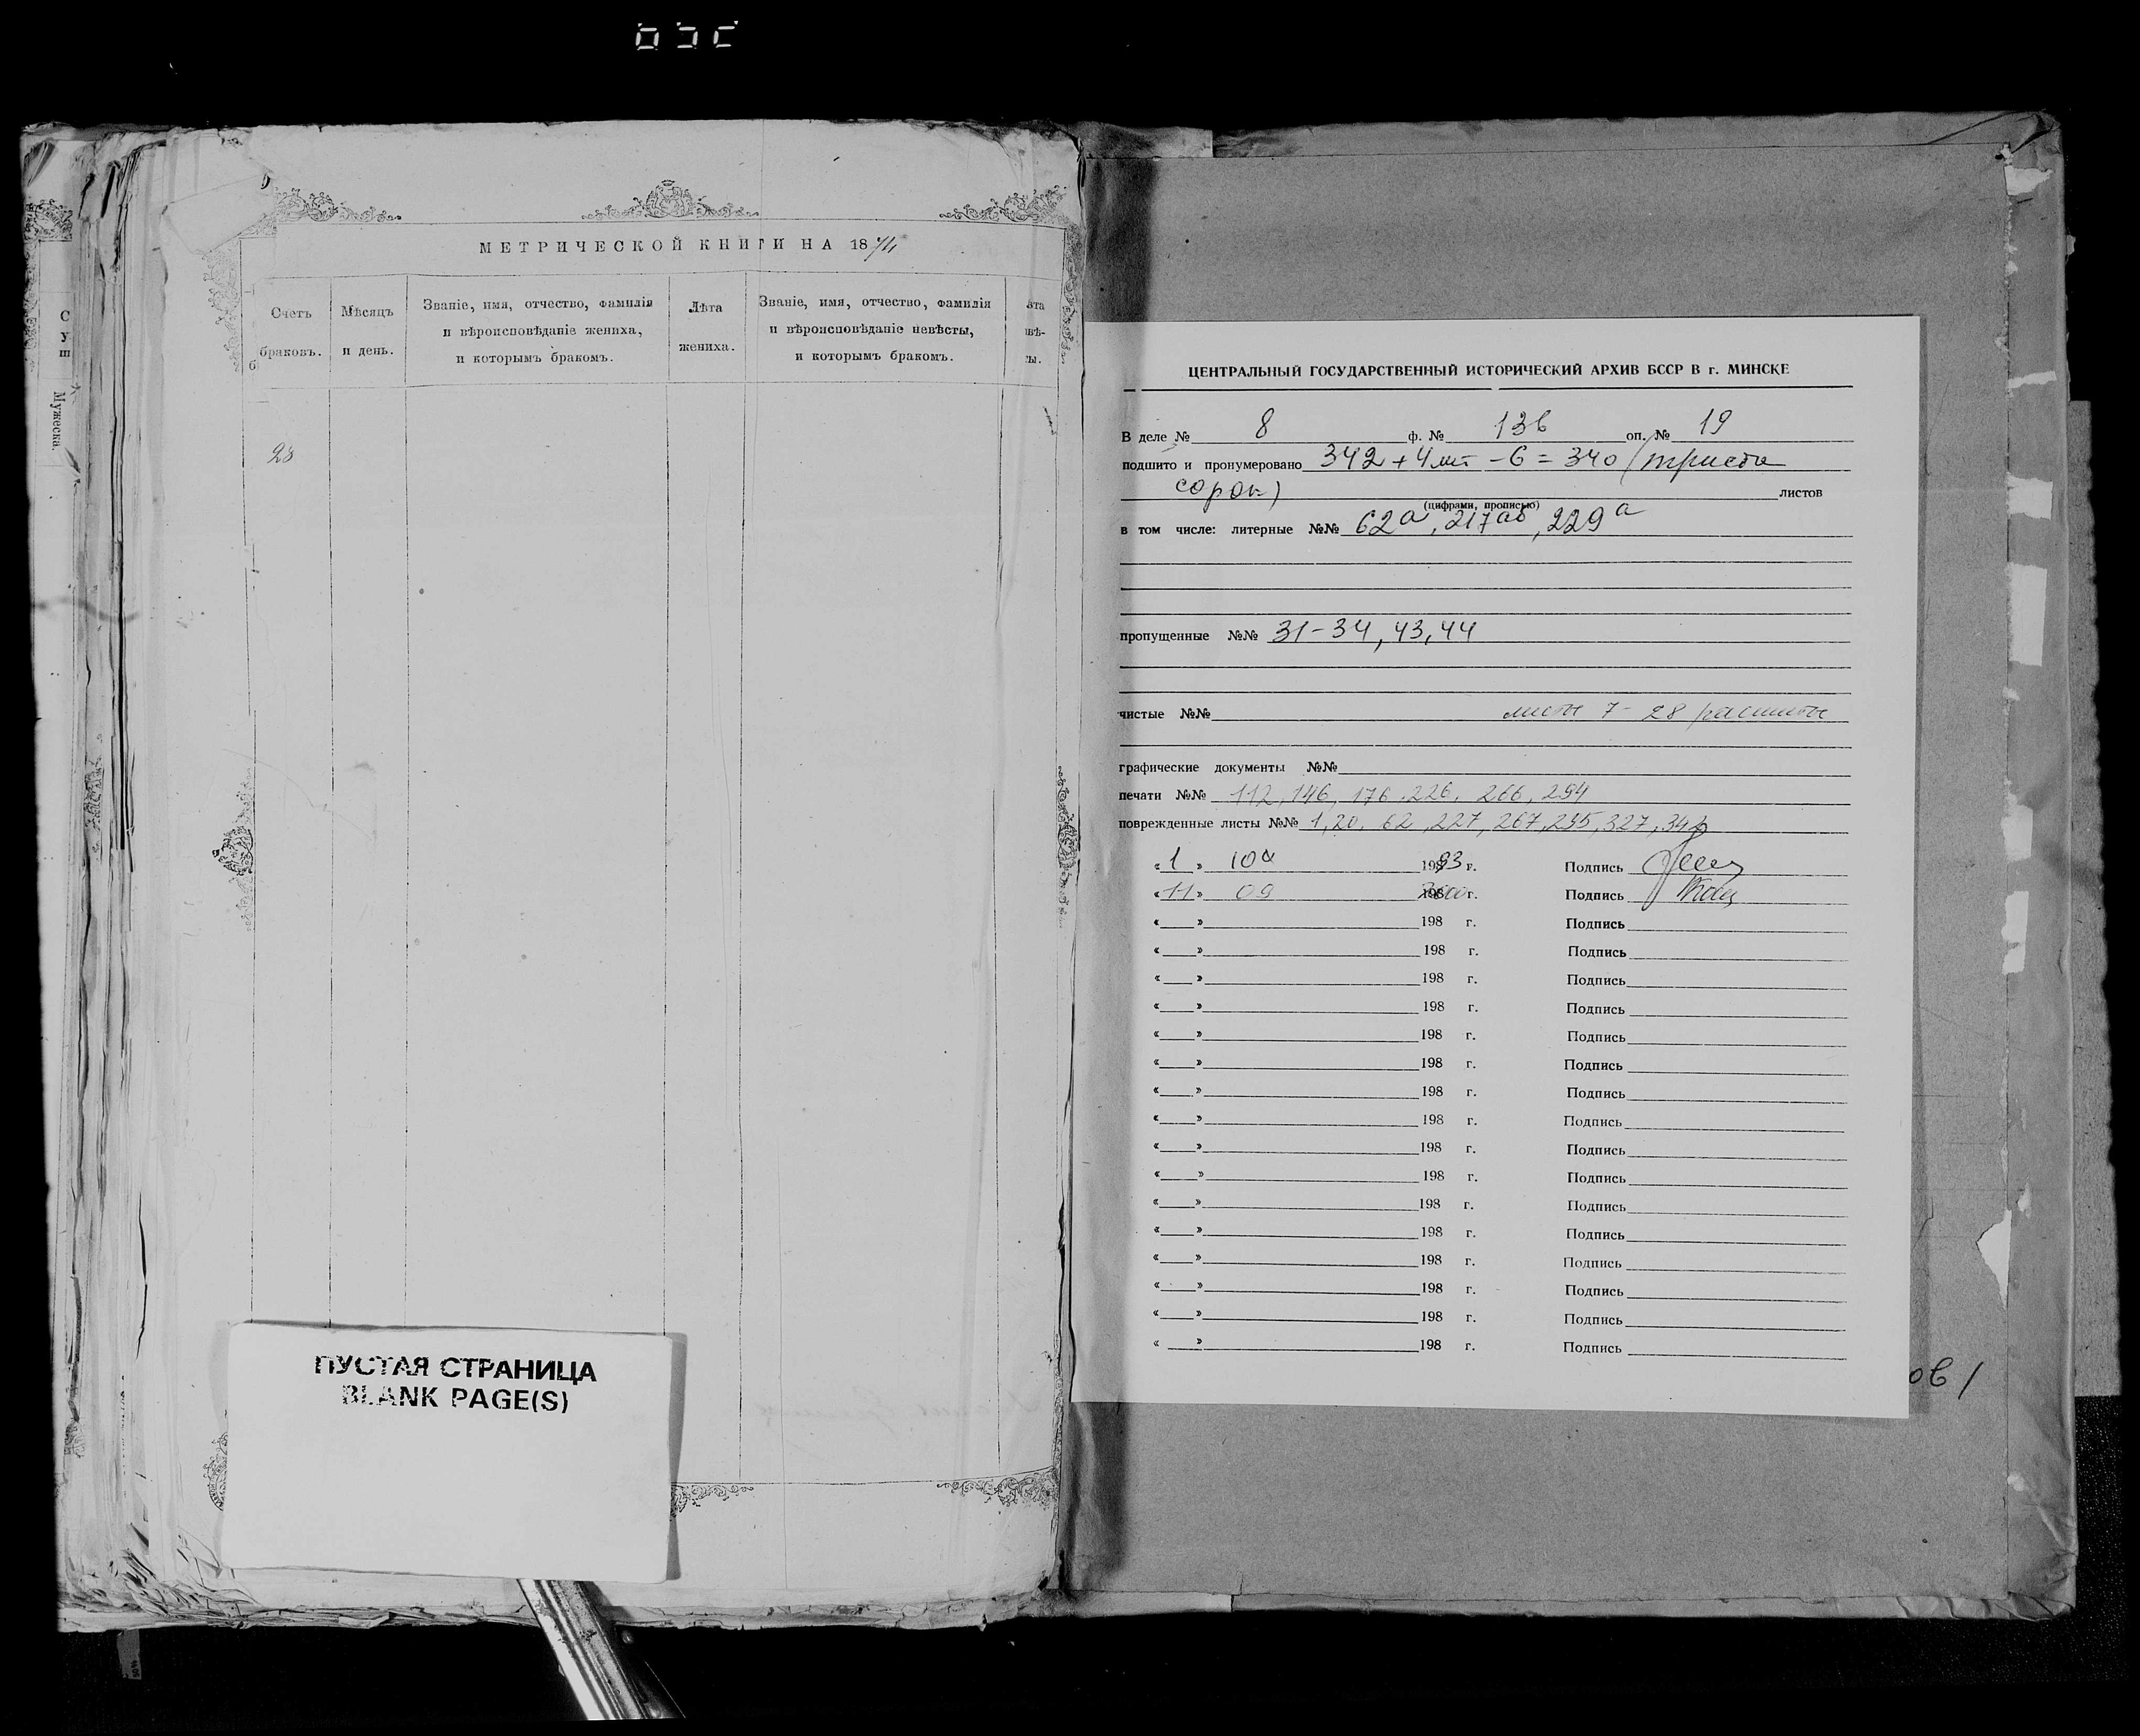 С
У
ш
Мужеска.
МЕТРИЧЕСКОЙ КНИГИ НА 1874
Счетъ браковъ.
Мѣсяцъ и день.
Званіе, имя, отчество, фамилія
и вѣроисповѣданіе жениха,
и которымъ бракомъ.
Лѣта
жениха.
Званіе, имя, отчество, фамилія
и вѣроисповѣданіе невѣсты,
и которымъ бракомъ.
28
ПУСТАЯ СТРАНИЦА
BLANK PAGE(S)
ЦЕНТРАЛЬНЫЙ ГОСУДАРСТВЕННЫЙ ИСТОРИЧЕСКИЙ АРХИВ БССР В г. МИНСКЕ
В деле № 8 ф. № 136 оп. № 19
подшито и пронумеровано 342 + 4 лит - 6 = 340 (триста
сорок) листов
(цифрами, прописью)
в том числе: литерные №№ 62а, 217аб, 229а
пропущенные №№ 31-34, 43, 44
чистые №№ листы 7-28 расшиты
графические документы №№
печати №№ 112, 146, 176, 226, 266, 294
поврежденные листы №№ 1, 20, 62, 227, 267, 295, 327, 342
« 1 » 10 1993 г. Подпись
« 11 » 09 2000 г. Подпись
« » 198 г. Подпись
« » 198 г. Подпись
« » 198 г. Подпись
« » 198 г. Подпись
« » 198 г. Подпись
« » 198 г. Подпись
« » 198 г. Подпись
« » 198 г. Подпись
« » 198 г. Подпись
« » 198 г. Подпись
« » 198 г. Подпись
« » 198 г. Подпись
« » 198 г. Подпись
« » 198 г. Подпись
« » 198 г. Подпись
« » 198 г. Подпись